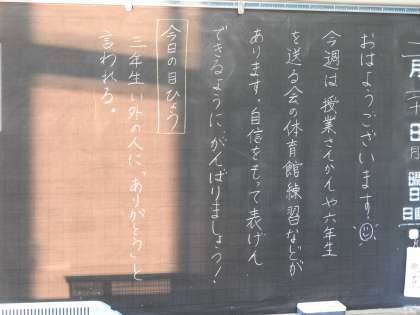 おはようございます！
今週は授業さんかんや六年生
を送る会の体育館練習などが
あります。自信をもって表げん
できるように、がんばりましょう！
今日の目ひょう
三年生以外の人に「ありがとう」と
言われる。
月
日
月
曜
日